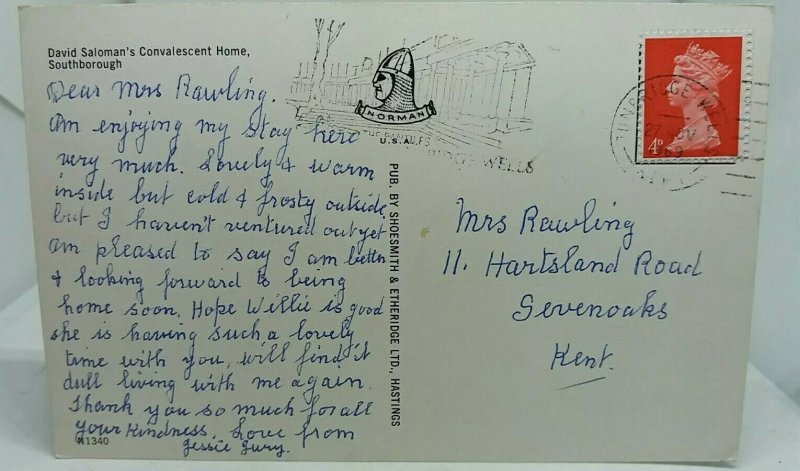 David Saloman's Convalescent Home,
Southborough
Dear Mrs Rawling.
Am enjoying my stay here
very much. Lovely & warm
inside but cold & frosty outside.
but I haven't ventured out yet
am pleased to say I am better
& looking forward to being
home soon. Hope Willie is good
she is having such a lovely
time with you, will find it
dull living with me again.
Thank you so much for all
your kindness. Love from
Jessie Jury.
M1340
PUB. BY SHOESMITH & ETHERIDGE LTD., HASTINGS
NORMAN
WELLS
4P
TUNBRIDGE WELLS
27
1969
Mrs Rawling
11. Hartsland Road
Sevenoaks
Kent.